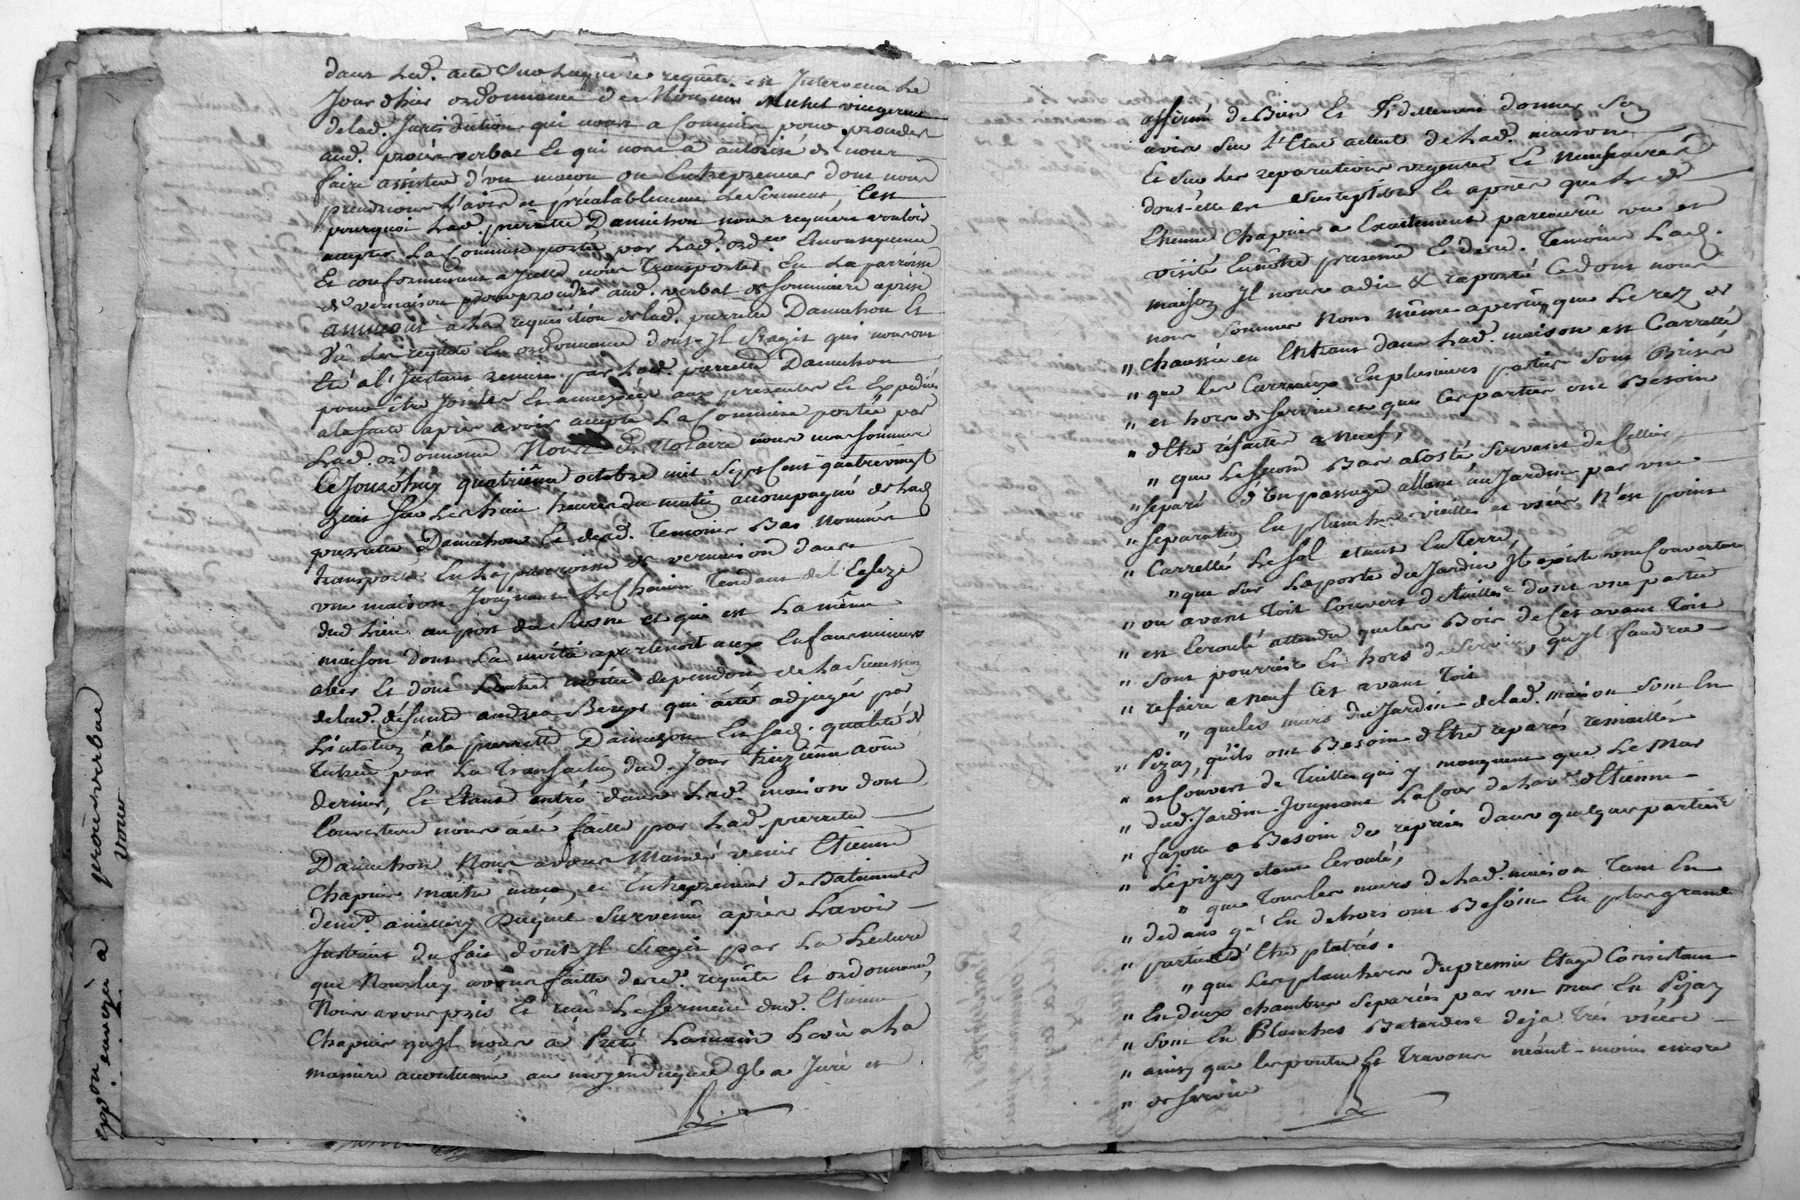 dans lad. acte au bas de laquelle requête est Intervenu le
Jour d'hier ordonnance de Monsieur Michel vicegerent
delad. Jurisdiction qui nous a Commis pour proceder
aud. procès verbal et qui nous a autorisé de nous
faire assister d'un macon ou Entrepreneur dont nous
prendrions L'avis et préalablement Le Serment, C'est
pourquoi Lad. pierrette Damichon nous a requis vouloir
accepter La Commise portée par Lad. ord.ce En consequence
Et conformement a Icelle nous Transporter En La parroisse
de vernaison pour proceder aud. verbal de Sommaire aprise
a la requisition de lad. pierrette Damichon Et
Vû les requête Et ordonnance dont Il S'agit qui nous ont
Eté a l'Instant remises par Lad. pierrette Damichon
pour être Jointes Et annexées aux presentes Et Expediées
a la Suite apres avoir accepté La Commise portée par
Lad. ordonnance Nous d. Notaire nous nous sommes
Ce Jourd'huy quatrième octobre mil Sept Cent quatre vingt
huit Sur Les huit heures du matin accompagné de Lad.
pierrette Damichon Et desd. Temoins Bas Nommés
transporté En La parroisse de vernaison dans
une maison Joignant Le Chemin Tendant de l'Eglize
dud Lieu au port du Rosne Et qui est La même
maison dont La moitié apartenoit aux Enfans mineurs
 Et dont L'autre moitié dépendoit de La Succession
de lad. défunte andrea qui a été adjugée par
Licitation à la pierrette Damichon En Sad. qualité de
Tutrice par La Transaction dud. Jour treizieme août
dernier, Et Etant entré dans Lad. maison dont
l'ouverture nous a été faitte par Lad. pierrette
Damichon Nous avons Mandé venir Etienne
Chapuis maitre macon et Entrepreneur de Batiments
 auquel Survenû après L'avoir
Instruit du fait dont Il S'agit par La Lecture
que Nous luy avons faitte desd. requête Et ordonnance,
Nous avons pris Et reçû Le Serment dud. Etienne
Chapuis qu'Il nous a Preté Lamain Levée a La
maniere accoutumée au moyen duquel Il a Juré et
affirmé de Bien Et Fidellement donner Son
avis Sur L'Etat actuel de Lad. maison
Et Sur Les reparations urgentes Et necessaires
dont elle est Susceptible Et après que Led.
Etienne Chapuis a Exactement parcouru vu et
visité En notre presence Et desd. Temoins Lad.
maison Il nous a dit & raporté Ce dont nous
nous Sommes Nous même aperçu, que Le rez de
" chaussée en Entrant dans Lad. maison est Carrellé
" que les Carreaux En plusieurs parties Sont Brisés
" et hors de Service et que Ces parties ont Besoin
" d'Etre réfaites a neuf,
" que Le second Bas acosté Servant de Cellier
" Separé d'un passage allant au Jardin par une
" Separation En planches vieilles et usées N'est point
" Carrellé Le Sol etant En Terre,
" que Sur La porte du Jardin Il existe une Couverture
" ou avant Toit Couvert de tuilles dont une partie
" est Ecroulé attendu que les Bois de Cet avant Toit
" Sont pourris Et hors de Service, qu'Il faudra
" refaire a neuf Cet avant Toit
" que les murs du Jardin delad. maison Sont En
" Pizay, qu'ils ont Besoin d'Etre reparés remaillés
" et Couvert de Tuilles qui y manquent que Le Mur
" dud. Jardin Joignant La Cour de Etienne
" fayolle a Besoin de reprises dans quelques parties
" Le pizay etant Ecroulé,
" que Tous les murs de Lad. maison Tant En
" dedans qu'En dehors ont Besoin En plus grande
" partie d'Etre platrés.
" que Les planchers du premier Etage Consistant
" En deux chambres Separées par un mur En Pizay
" Sont En Planches Batardes deja très usées
" ainsy que les poutres Et Travons néant-moins encore
" de Service
procès verbal
exp.on envoyé a